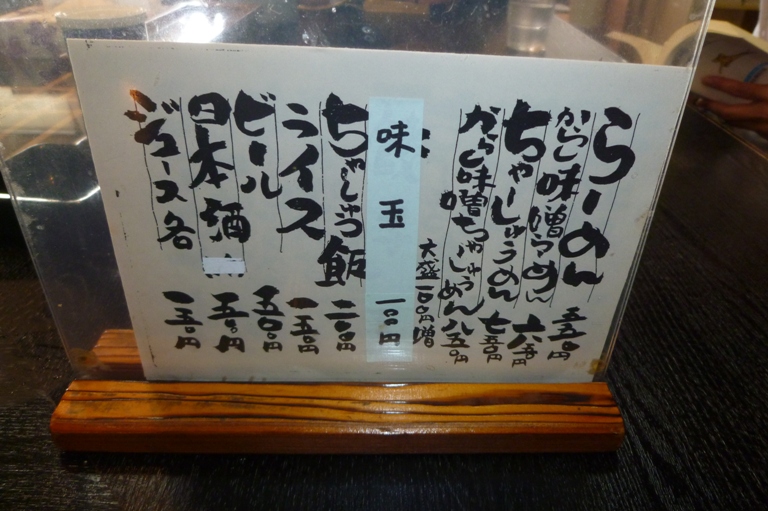 らーめん 五五〇円
からし味噌らーめん 六五〇円
ちゃしゅうめん 七五〇円
からし味噌ちゃしゅうめん 八五〇円
大盛一〇〇円増
味玉 一〇〇円
ちゃしゅう飯 二〇〇円
ライス 一五〇円
ビール 五〇〇円
日本酒 五〇〇円
ジュース各 一五〇円